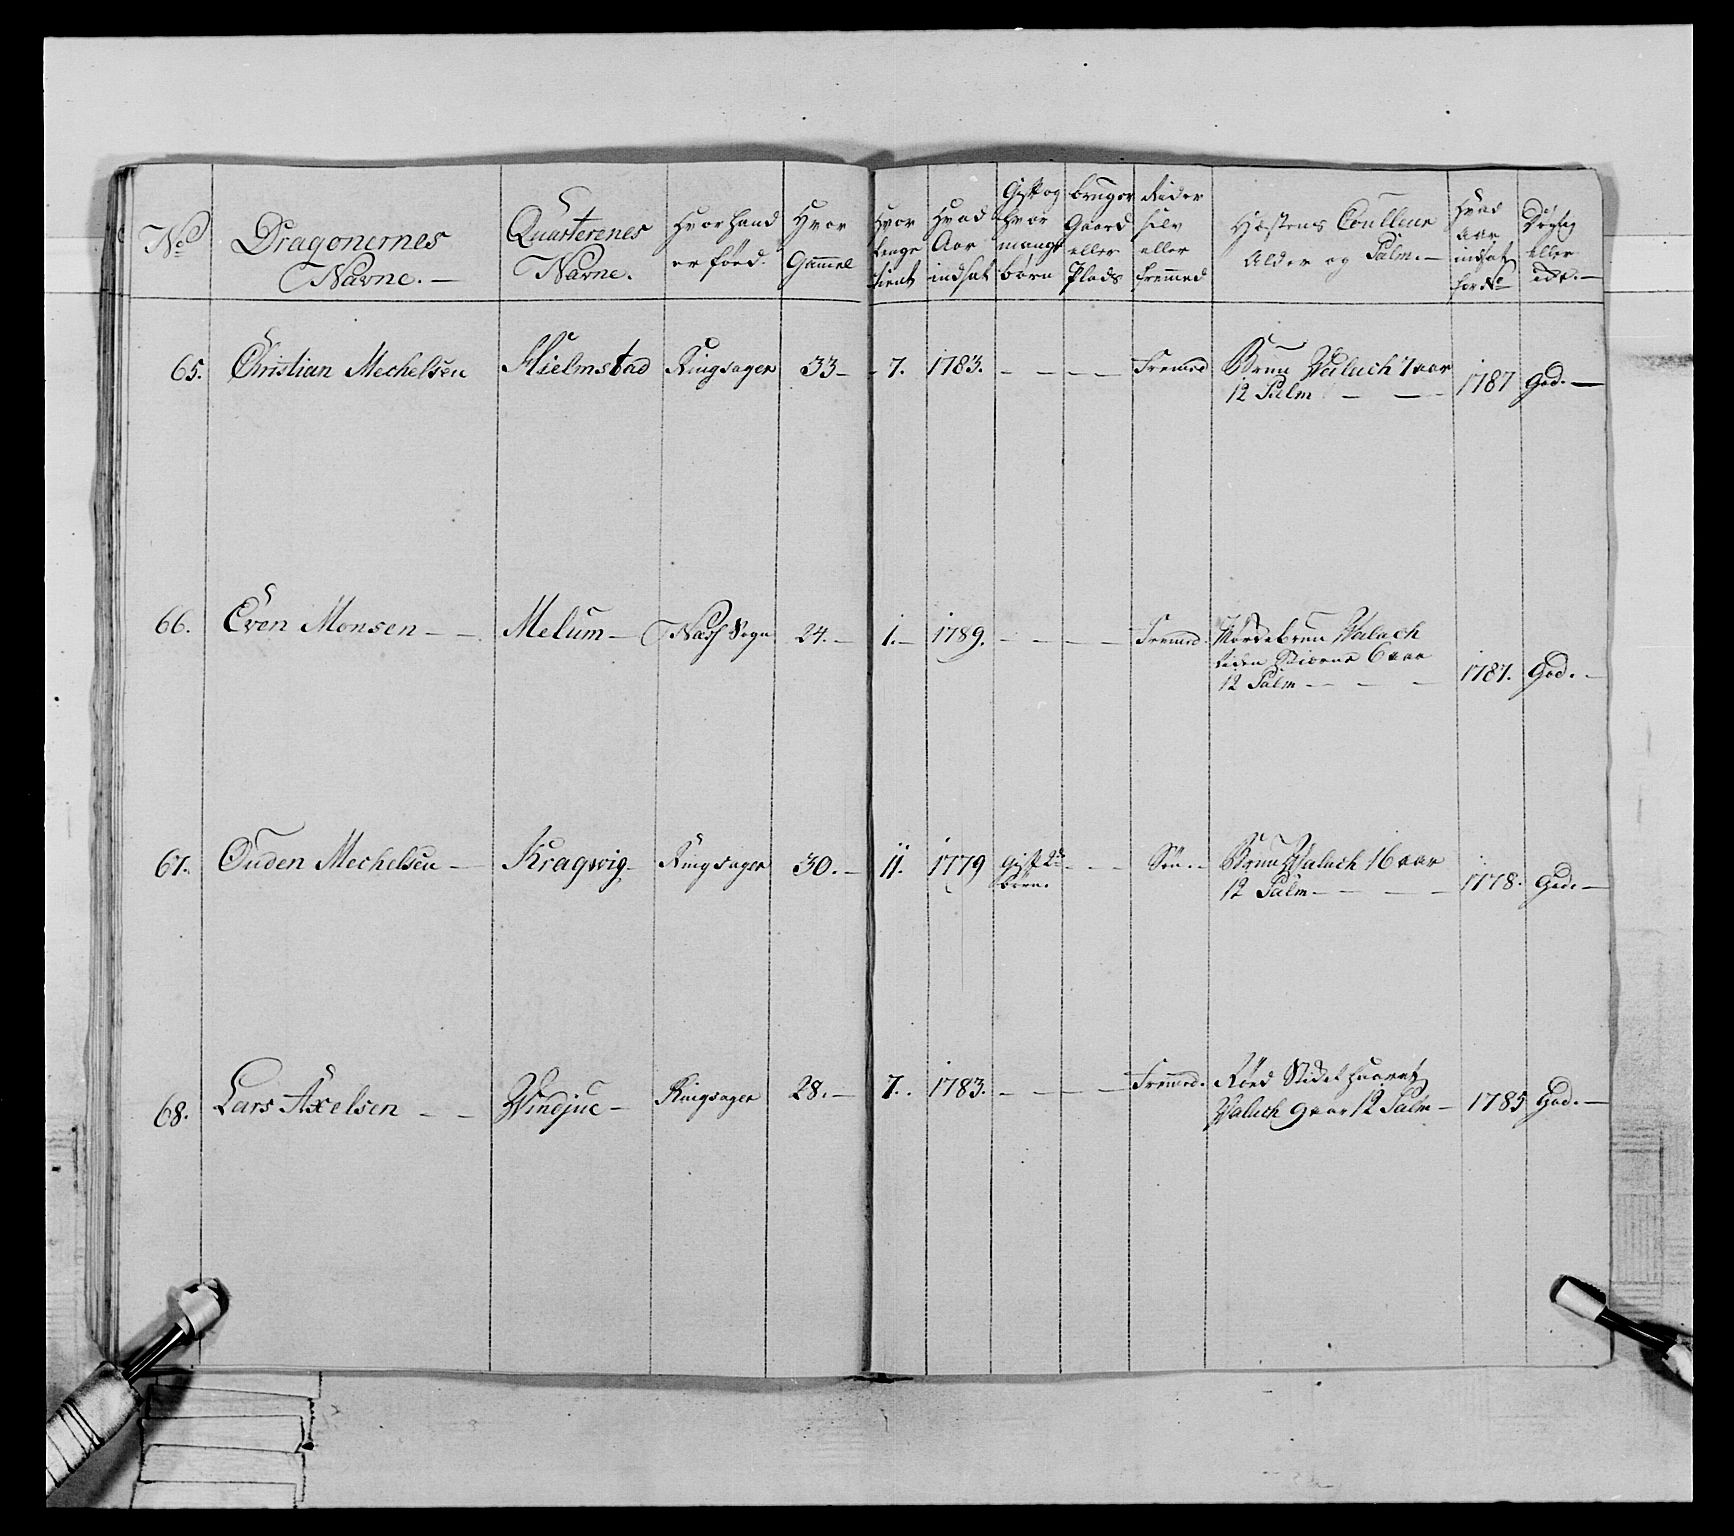 No
Dragonernes
Navne. —
Quarterenes
Navne.
Hvor hand
er föed.
Hvor
Gammel
Hvor
lenge
tient
Hvad
Aar
indsat
Gift og
hvor
mange
börn
bruger
Gaard
eller
Plads
Rider
selv
eller
fremmed
Hæstens Coulleur
Alder og Palm. —
Hvad
aar
indsat
for No
Dögtig
eller
ide. —
65. Christian Mechelsen Hielmstad Ringsager 33 — 7. 1783. — — — — Fremed Brun Valach 7 aar
12 Palm — — — 1787 god. —
66. Even Monsen — — Melum — Næss Sogn 24. — 1. — 1789. — — — — Fremed. Mördebrun Valach
uden Stierne 6 aar
12 Palm — — — — 1787. God. —
67. Ouden Mechelsen — Kragwig — Ringsager 30. — 11. 1779 gift 2de — — — Sön. — Brun Valach 16 aar
börn.
12 Palm — — — — 1778. God. —
68. Lars Axelsen — — Windjue — Ringsager 28. — 7. 1783. — — — — Fremed. Röed Stidelhaaret
Valach 9 aar 12 Palm — 1785 God. —